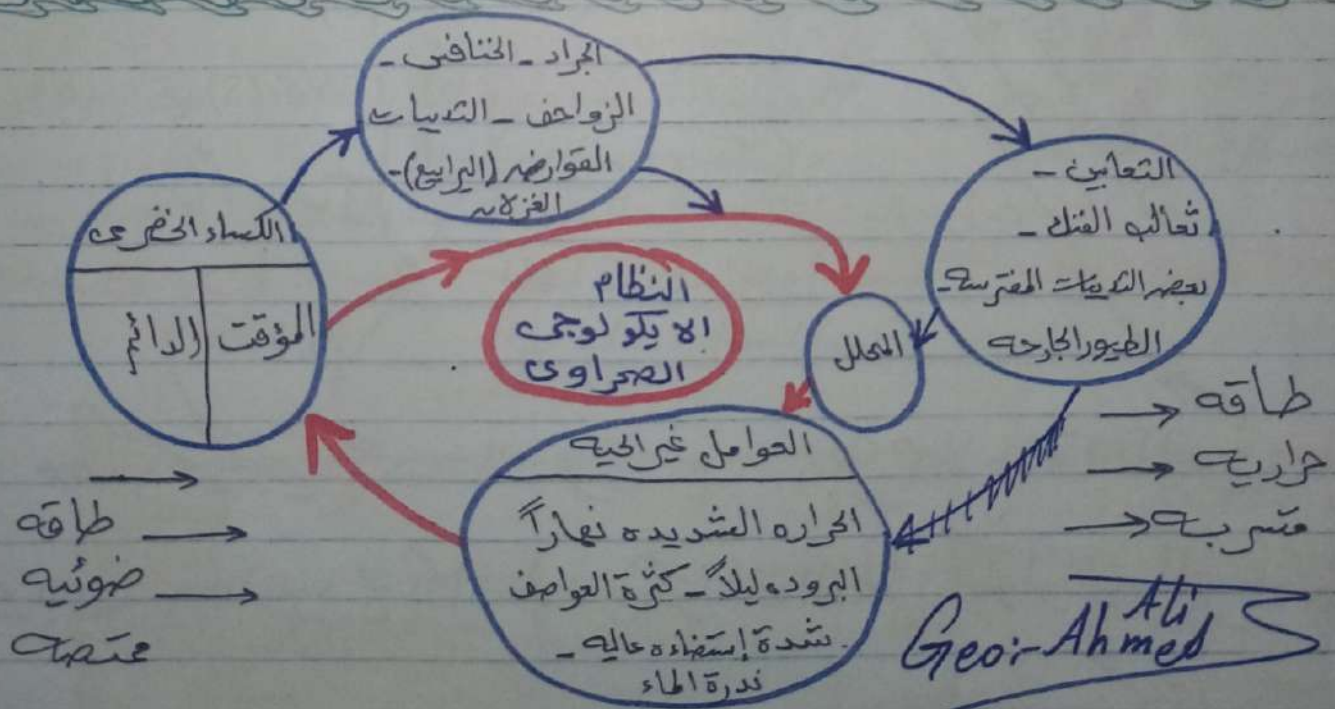 الجراد - الخنافس -
الزواحف - الثدييات
القوارض (اليرابيع) -
الغزلان
الثعابين -
ثعالب الفنك -
بعض الثدييات المفترسه -
الطيور الجارحه
الكساء الخضرى
المؤقت
الدائم
النظام
الايكولوجى
الصحراوى
المحلل
العوامل غير الحيه
الحراره الشديده نهاراً
البروده ليلاً - كثرة العواصف
شدة إستضاءه عاليه -
ندرة الماء
طاقه
حراريه
متسربه
طاقه
ضوئيه
ممتصه
Geo:- Ahmed Ali